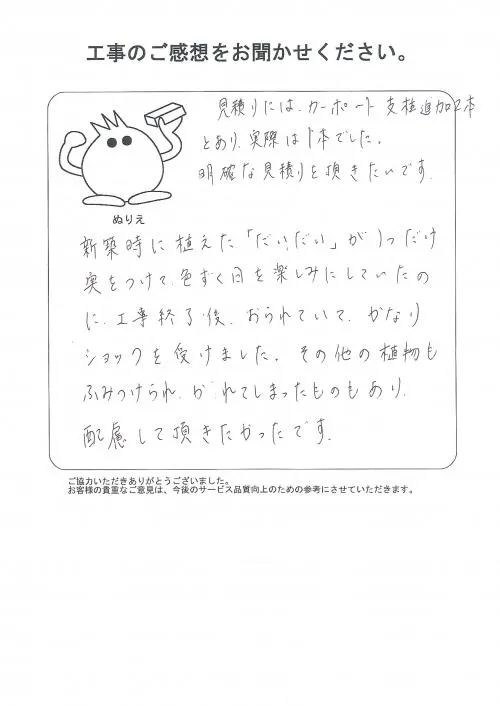 工事のご感想をお聞かせください。
見積りには、カーポート 支柱追加2本
とあり、実際は1本でした。
明確な見積りを頂きたいです。
ぬりえ
新築時に植えた「だいだい」が1つだけ
実をつけて、色ずく日を楽しみにしていたの
に、工事終了後、おられていて、かなり
ショックを受けました。その他の植物も
ふみつけられ、かれてしまったものもあり、
配慮して頂きたかったです。
ご協力いただきありがとうございました。
お客様の貴重なご意見は、今後のサービス品質向上のための参考にさせていただきます。